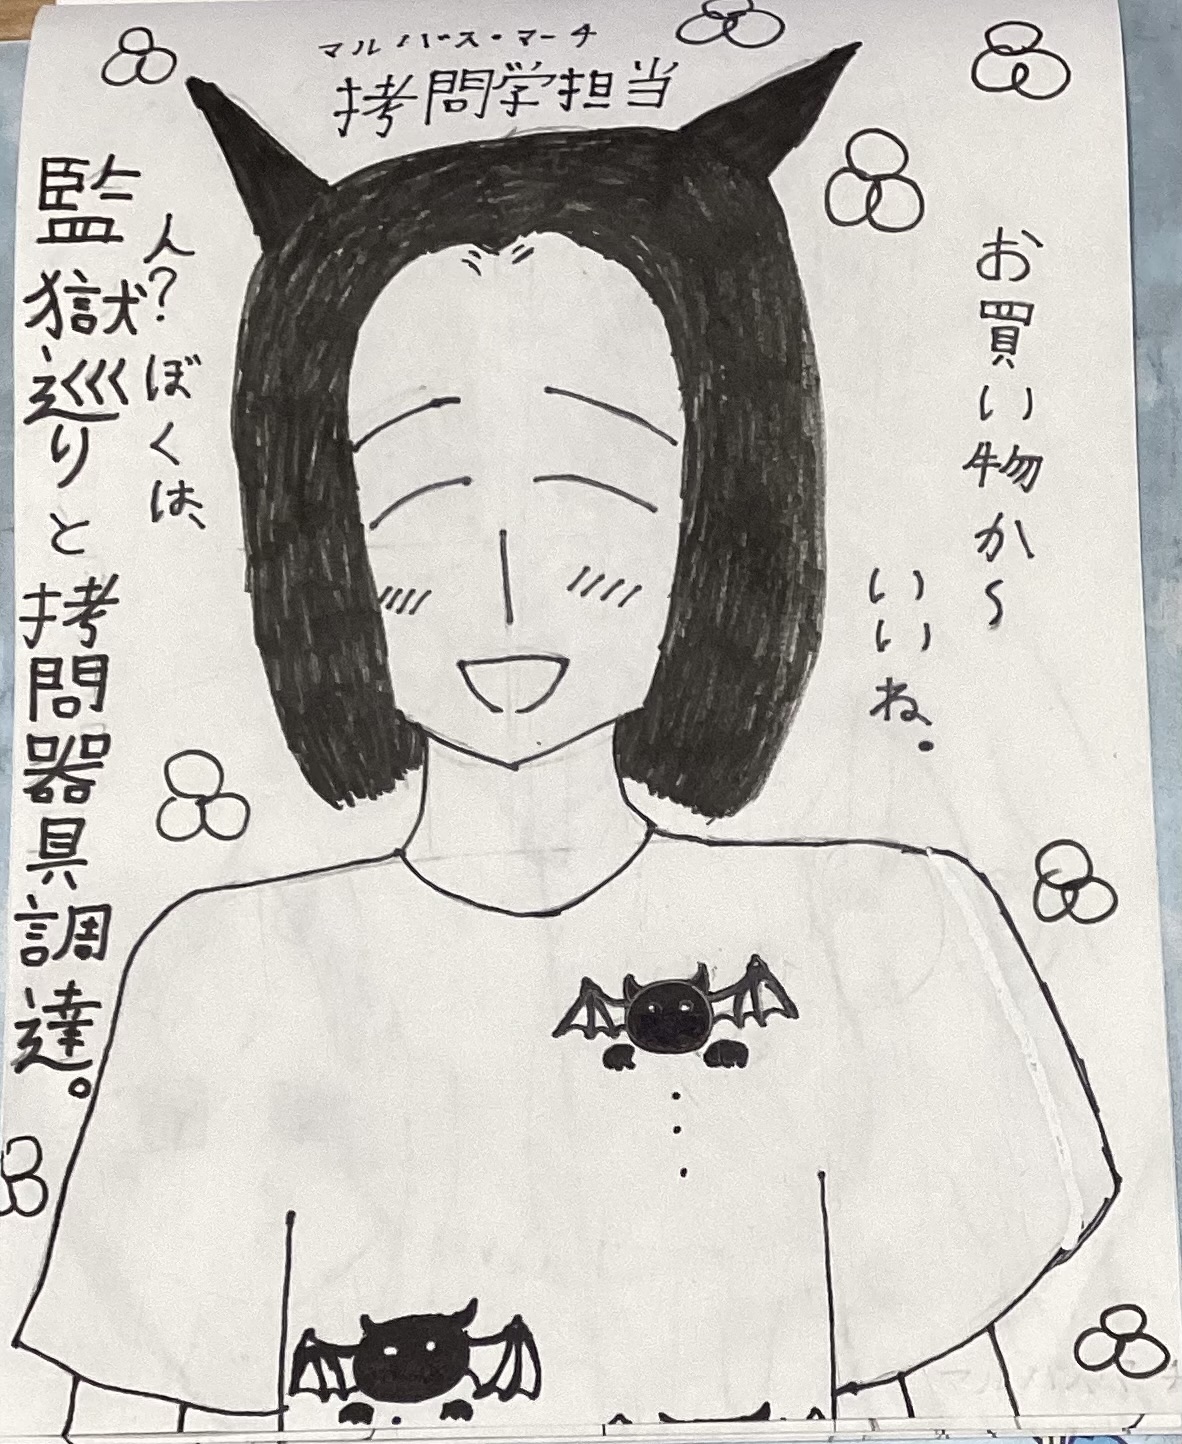 マルバス・マーチ
拷問学担当
お買い物か〜
いいね。
ん?ぼくは、
監獄巡りと拷問器具調達。